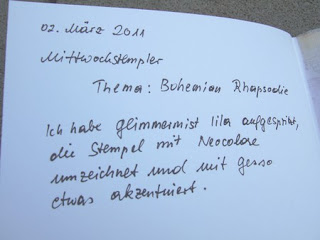 02. März 2011
Mittwochstempler
Thema: Bohemian Rhapsodie
Ich habe Glimmermist lila aufgesprüht,
die Stempel mit Neocolore
umzeichnet und mit Gesso
etwas akzentuiert.